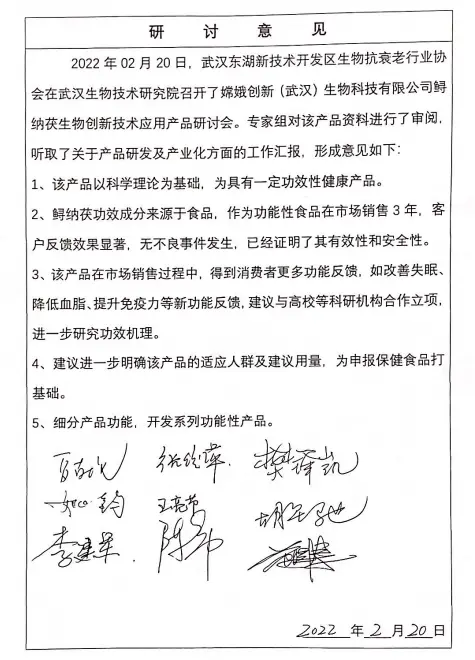 研讨意见
2022年02月20日，武汉东湖新技术开发区生物抗衰老行业协
会在武汉生物技术研究院召开了嫦娥创新（武汉）生物科技有限公司鲟
纳茯生物创新技术应用产品研讨会。专家组对该产品资料进行了审阅，
听取了关于产品研发及产业化方面的工作汇报，形成意见如下：
1、该产品以科学理论为基础，为具有一定功效性健康产品。
2、鲟纳茯功效成分来源于食品，作为功能性食品在市场销售3年，客
户反馈效果显著，无不良事件发生，已经证明了其有效性和安全性。
3、该产品在市场销售过程中，得到消费者更多功能反馈，如改善失眠、
降低血脂、提升免疫力等新功能反馈，建议与高校等科研机构合作立项，
进一步研究功效机理。
4、建议进一步明确该产品的适应人群及建议用量，为申报保健食品打
基础。
5、细分产品功能，开发系列功能性产品。
李建军
2022年2月20日